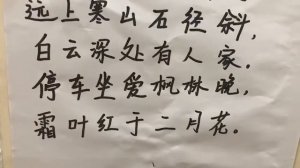 远上寒山石径斜，
白云深处有人家.
停车坐爱枫林晚，
霜叶红于二月花.